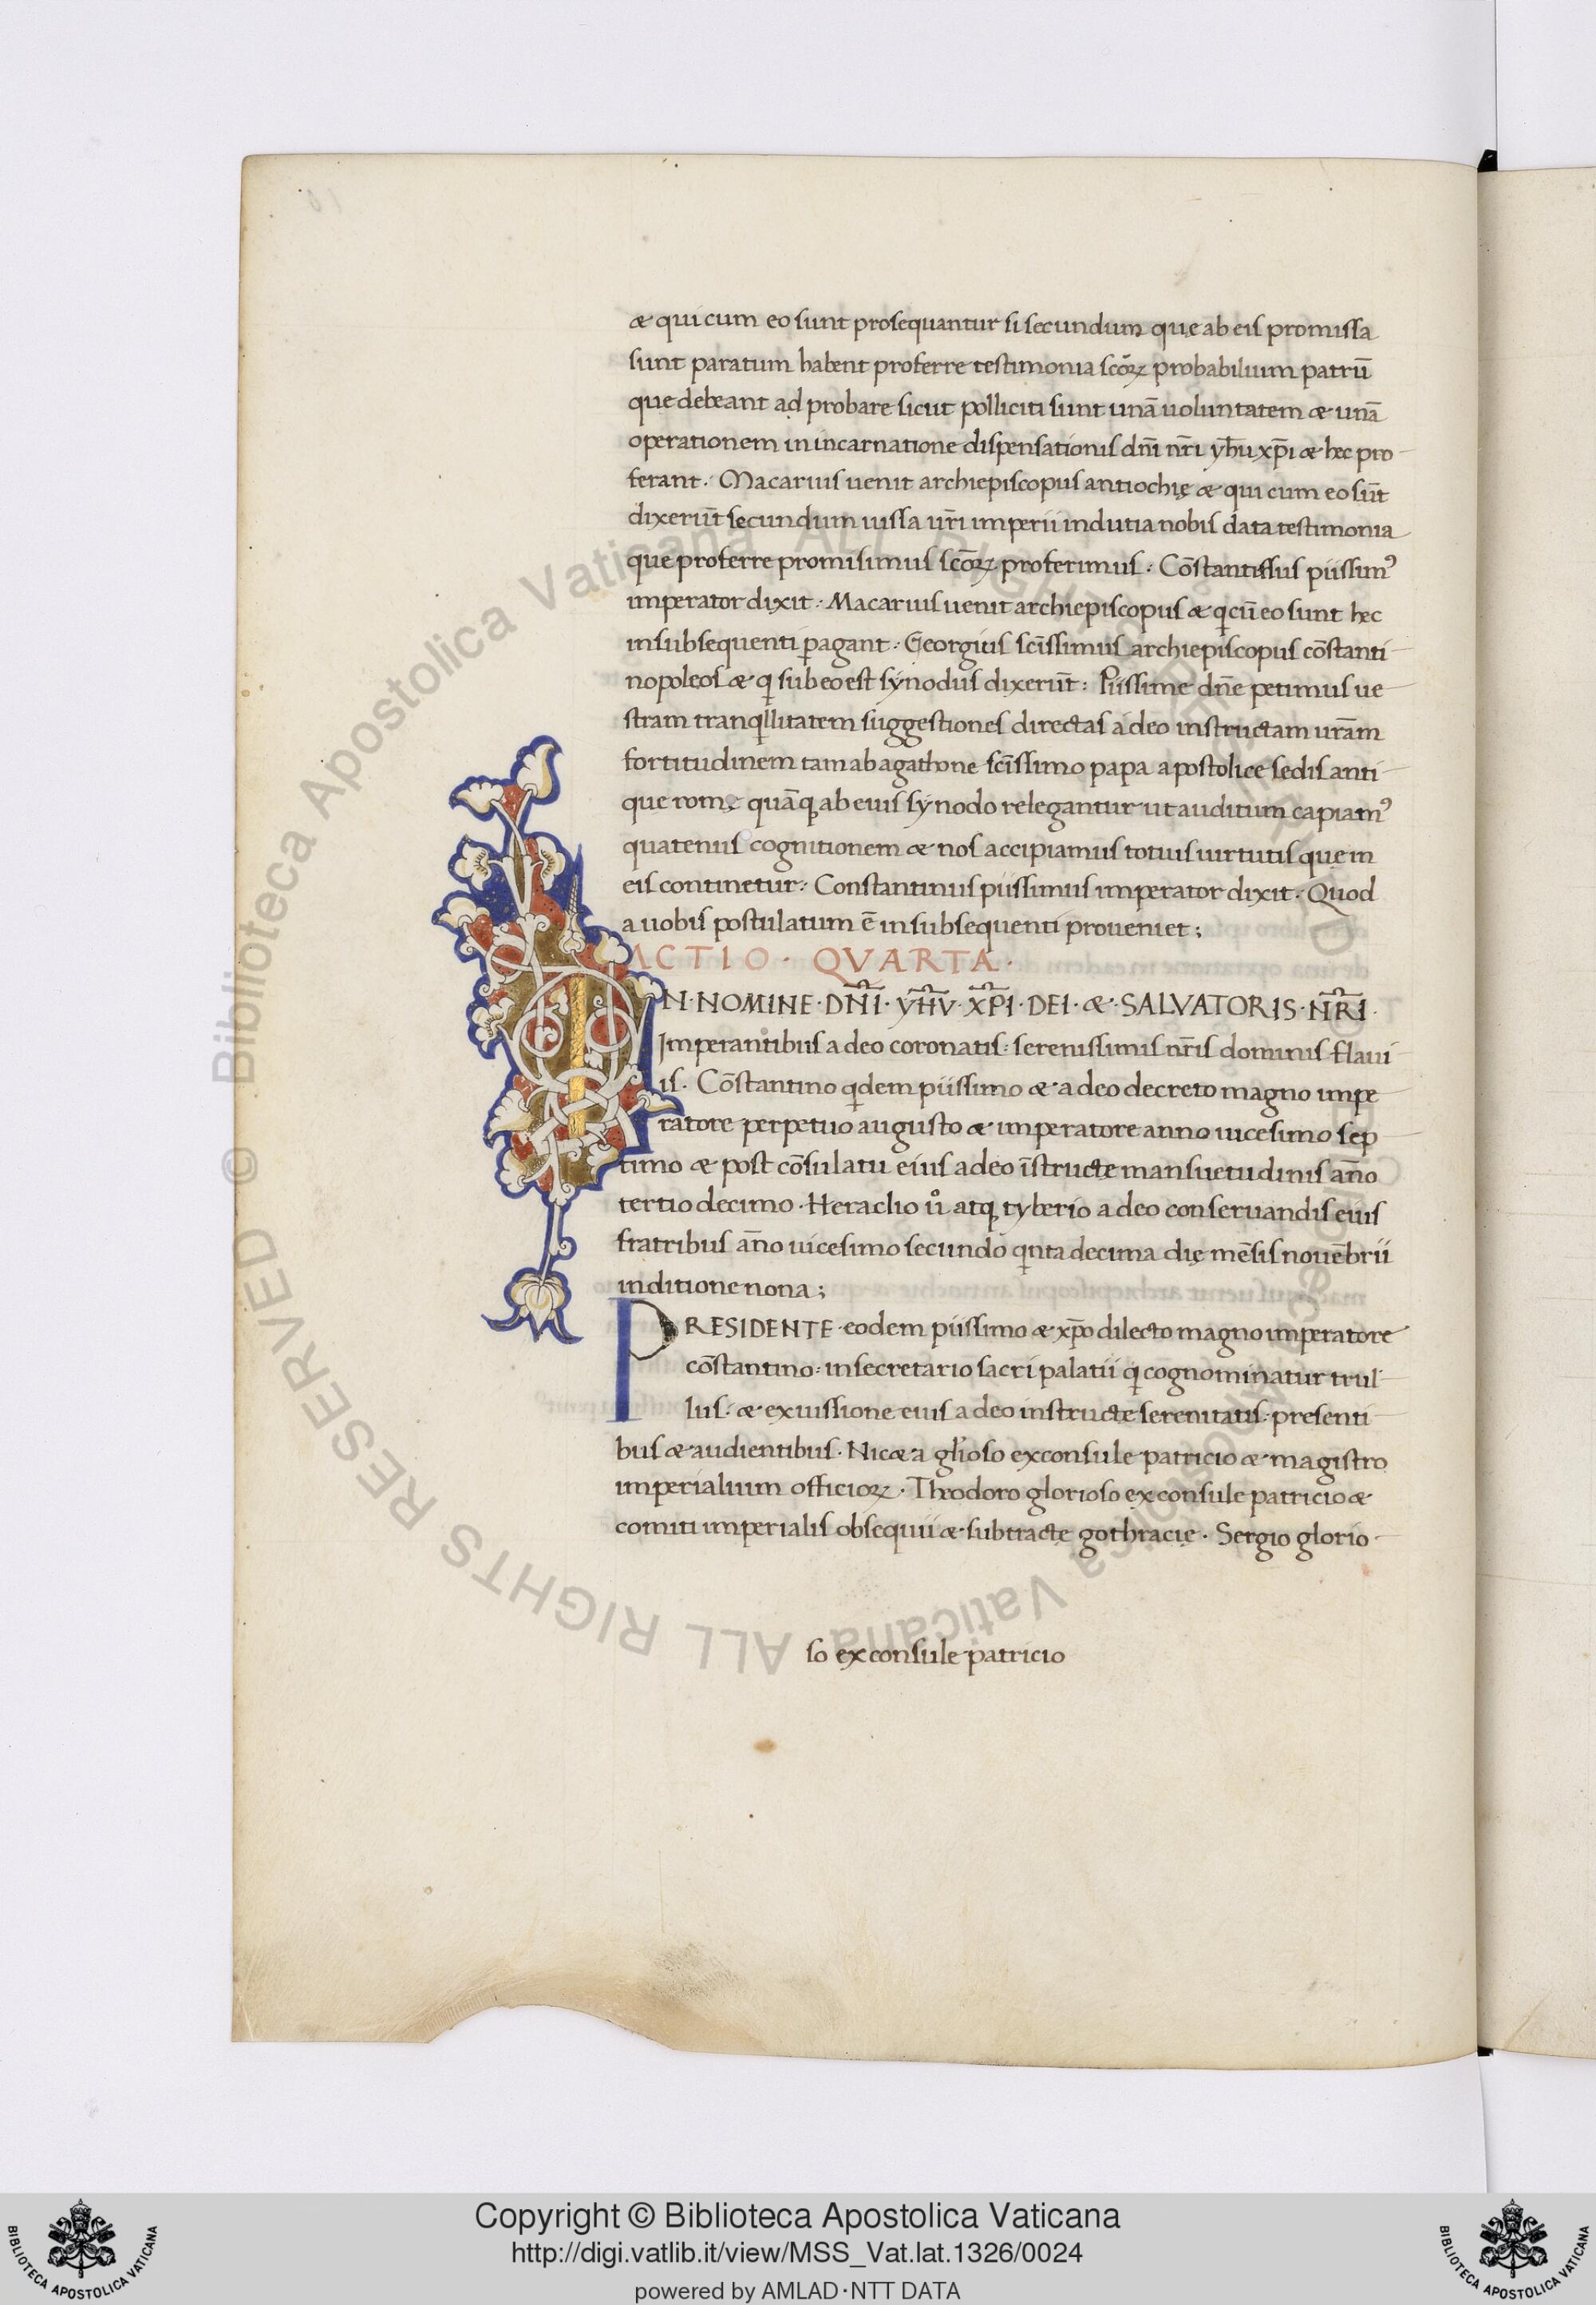 æ qui cum eo sunt prosequantur si secundum que ab eis promissa
sunt paratum habent proferre testimonia scõꝝ probabilium patrũ
que debeant ad probare sicut polliciti sunt unã uoluntatem æ unã
operationem in incarnatione dispensationis dñi nr̃i yh̃u xp̃i æ hec pro
ferant. Macarius uenit archiepiscopus antiochię æ qui cum eo sũt
dixerũt secundum iussa ur̃i imperii indutia nobis data testimonia
que proferre promisimus scõꝝ proferimus. Cõstantissus piissimꝰ
imperator dixit. Macarius uenit archiepiscopus æ qͥ cũ eo sunt hec
in subsequenti ꝑagant. Georgius scĩssimus archiepiscopus cõstanti
nopoleos æ qͥ sub eo est synodus dixerũt: Piissime dñe petimus ue
stram tranqͥllitatem suggestiones directas á deo instructam ur̃am
fortitudinem tam ab agathone scĩssimo papa apostolice sedis anti
que romę quãqꝫ ab eius synodo relegantur ut auditum capiamꝰ
quatenus cognitionem æ nos accipiamus totius uirtutis que in
eis continetur: Constantinus piissimus imperator dixit. Quod
a uobis postulatum ẽ in subsequenti proueniet;
ACTIO. QVARTA.
IN·NOMINE·DÑI·YH̃V·XP̃I·DEI·æ·SALVATORIS·NR̃I·
Imperantibus a deo coronatis: serenissimis nr̃is dominis flaui
is. Cõstantino qͥdem piissimo æ a deo decreto magno impe
ratore perpetuo augusto æ imperatore anno uicesimo sep
timo æ post cõsulatu eius a deo ĩstructę mansuetudinis año
tertio decimo. Heraclio uͦ atqꝫ tyberio a deo conseruandis eius
fratribus año uicesimo secundo qͥnta decima dię mẽsis nouẽbrii
inditione nona;
PRESIDENTE eodem piissimo æ xp̃o dilecto magno imperatore
cõstantino: in secretario sacri palatii qͥ cognominatur trul
lus. æ ex iussione eius a deo instructę serenitatis. presenti
bus æ audientibus. Nicæa gl̃ioso exconsule patricio æ magistro
imperialium officioꝝ. Theodoro glorioso ex consule patricio æ
comiti imperialis obsequii æ subtractę gothracię. Sergio glorio
so ex consule patricio
© Biblioteca Apostolica Vaticana ALL RIGHTS RESERVED
© Biblioteca Apostolica Vaticana ALL RIGHTS RESERVED
Copyright © Biblioteca Apostolica Vaticana
http://digi.vatlib.it/view/MSS_Vat.lat.1326/0024
powered by AMLAD·NTT DATA
BIBLIOTECA APOSTOLICA VATICANA
BIBLIOTECA APOSTOLICA VATICANA